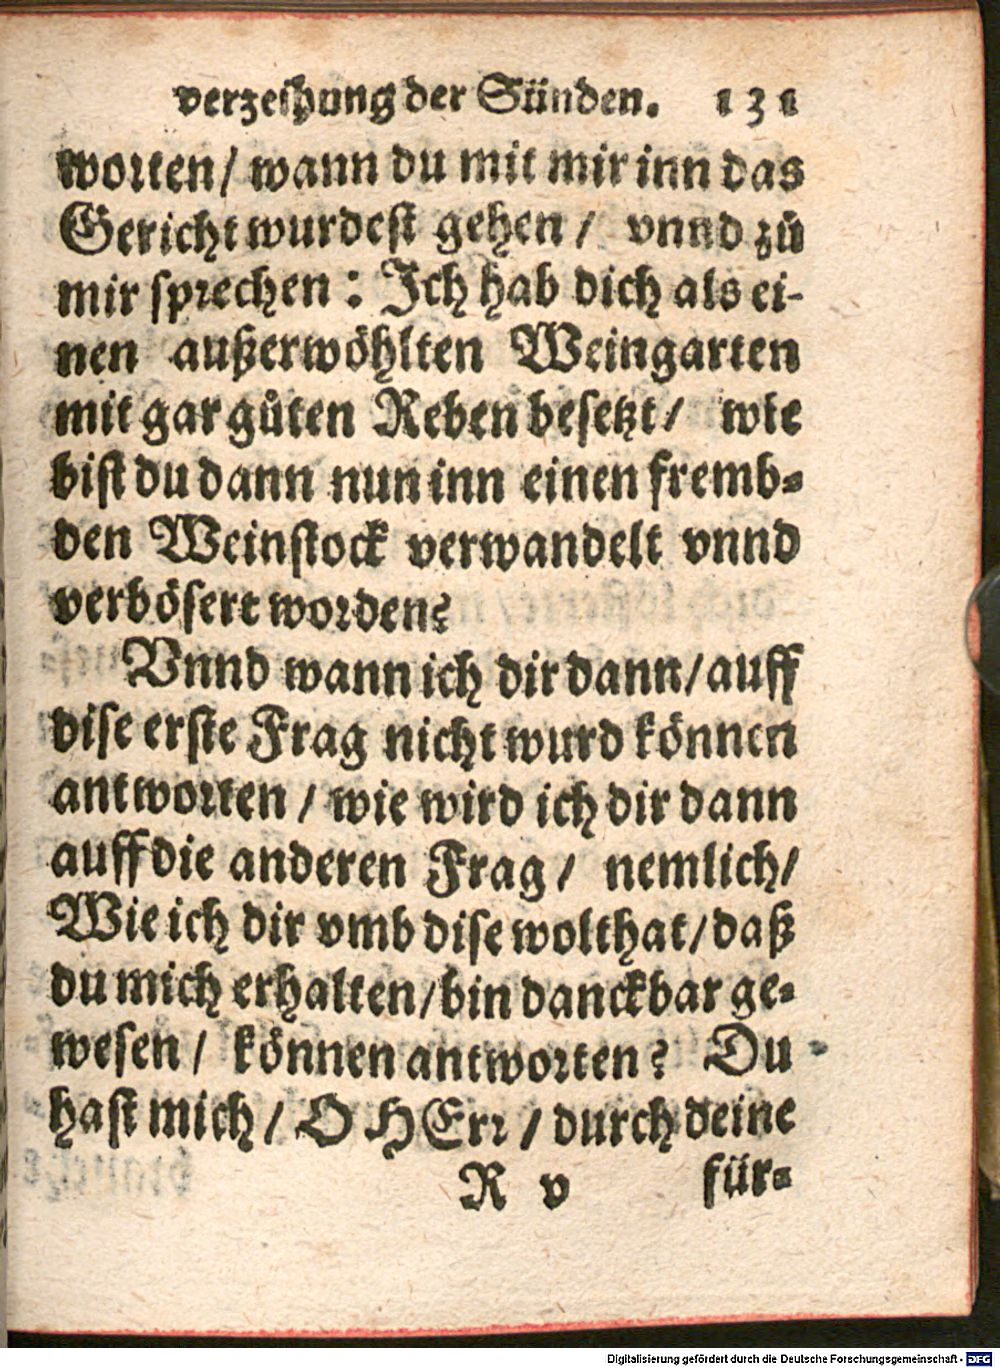 verzeihung der Sünden. 131
worten / wann du mit mir inn das
Gericht wurdest gehen / vnnd zů
mir sprechen : Ich hab dich als ei-
nen außerwöhlten Weingarten
mit gar gůten Reben besetzt / wie
bist du dann nun inn einen fremb-
den Weinstock verwandelt vnnd
verbösert worden?
Vnnd wann ich dir dann / auff
dise erste Frag nicht wurd können
antworten / wie wird ich dir dann
auff die anderen Frag / nemlich /
Wie ich dir vmb dise wolthat / daß
du mich erhalten / bin danckbar ge-
wesen / können antworten? Du
hast mich / O HErr / durch deine
R v für-
Digitalisierung gefördert durch die Deutsche Forschungsgemeinschaft - DFG